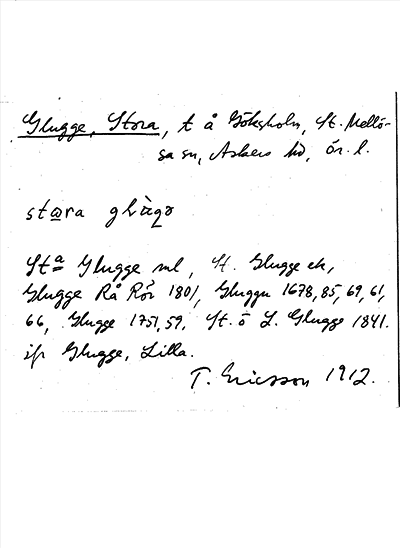 Glugge, Stora, t å Göksholm, St. Mellö-
sa sn, Askers hd, Ör. l.
stɷra
St.ª Glugge ml, St. Glugge ek,
Glugge Rå Rör 1801, Gluggu 1678, 85, 69, 61,
66, Glugge 1751, 59. St. o L. Glugge 1841.
jfr Glugge, Lilla.
T. Ericsson 1912.